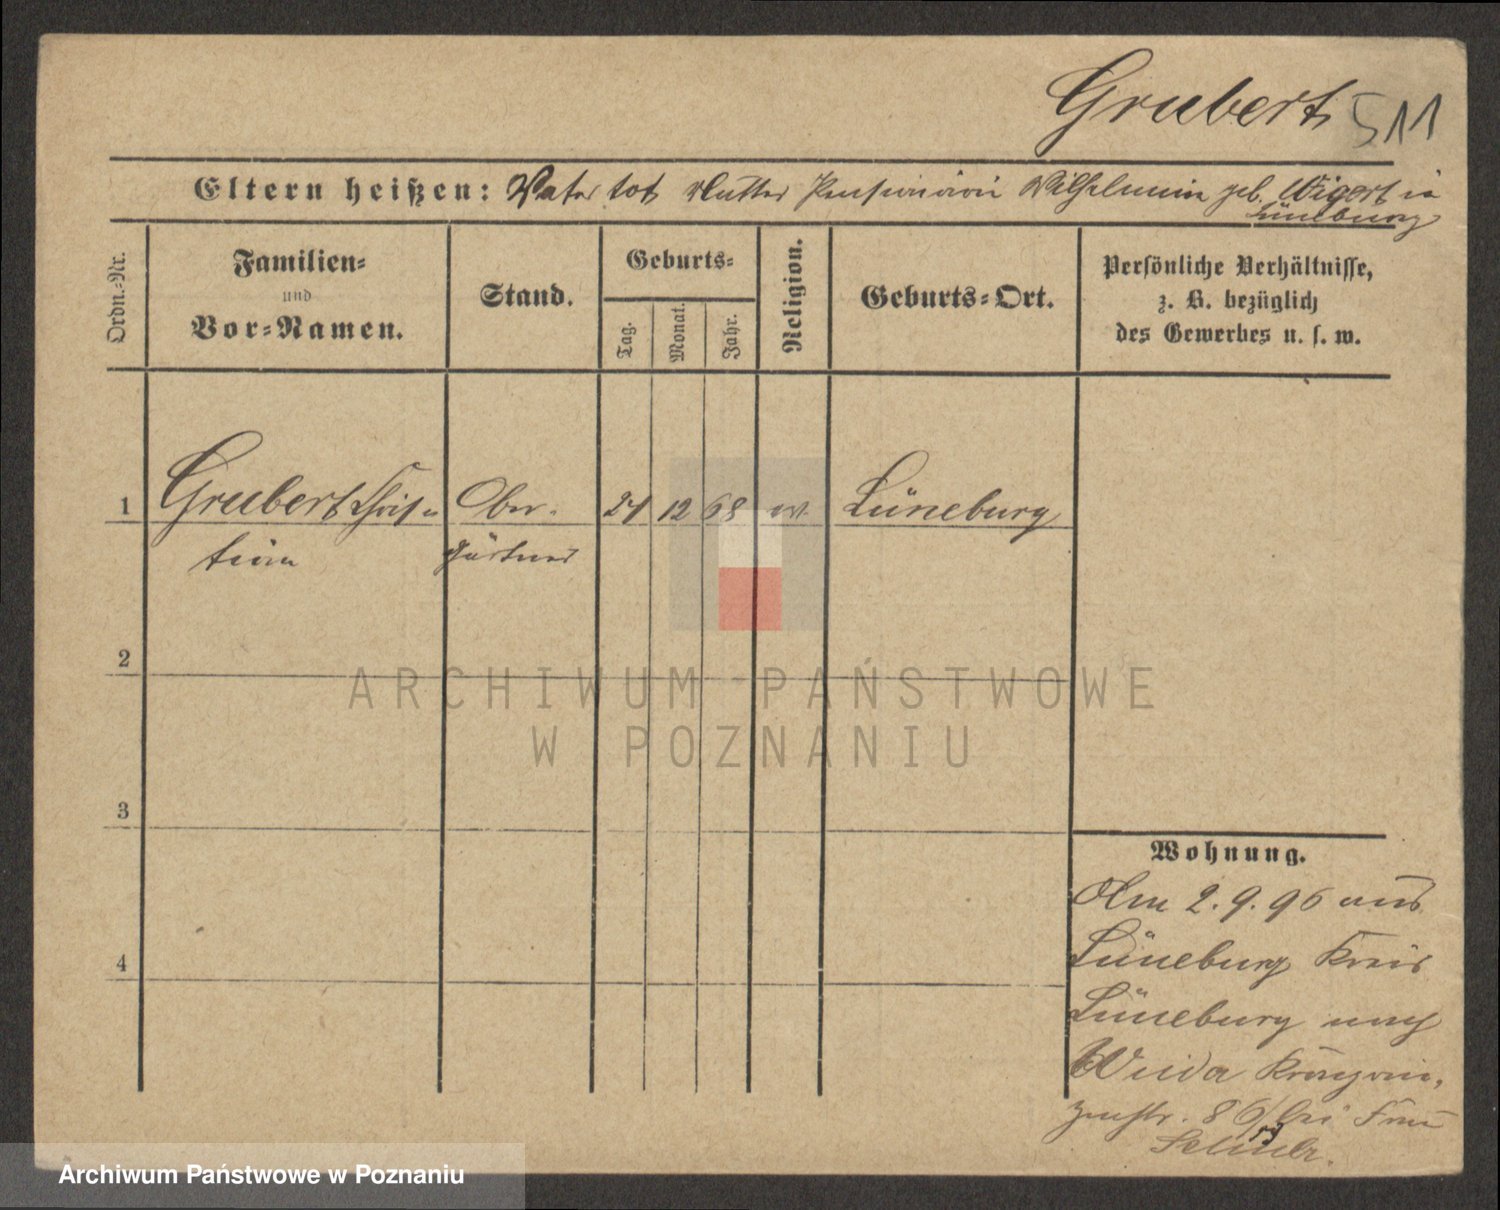 Grubert 511
Eltern heißen: Vater tot Mutter Pensionärin Wilhelmine geb. Wigert in
Lüneburg
Ordn.-Nr.
Familien-
und
Vor-Namen.
Stand.
Geburts-
Tag.
Monat.
Jahr.
Religion.
Geburts-Ort.
Persönliche Verhältnisse,
z. B. bezüglich
des Gewerbes u. s. w.
1 Grubert Chris- Ober- 21 12 68 ev. Lüneburg
tian gärtner
2
3
4
Wohnung.
Am 2.9.96 aus
Lüneburg Kreis
Lüneburg nach
Wilda Kronprin-
zenstr. 86 bei Frau
ARCHIWUM PAŃSTWOWE
W POZNANIU
Archiwum Państwowe w Poznaniu